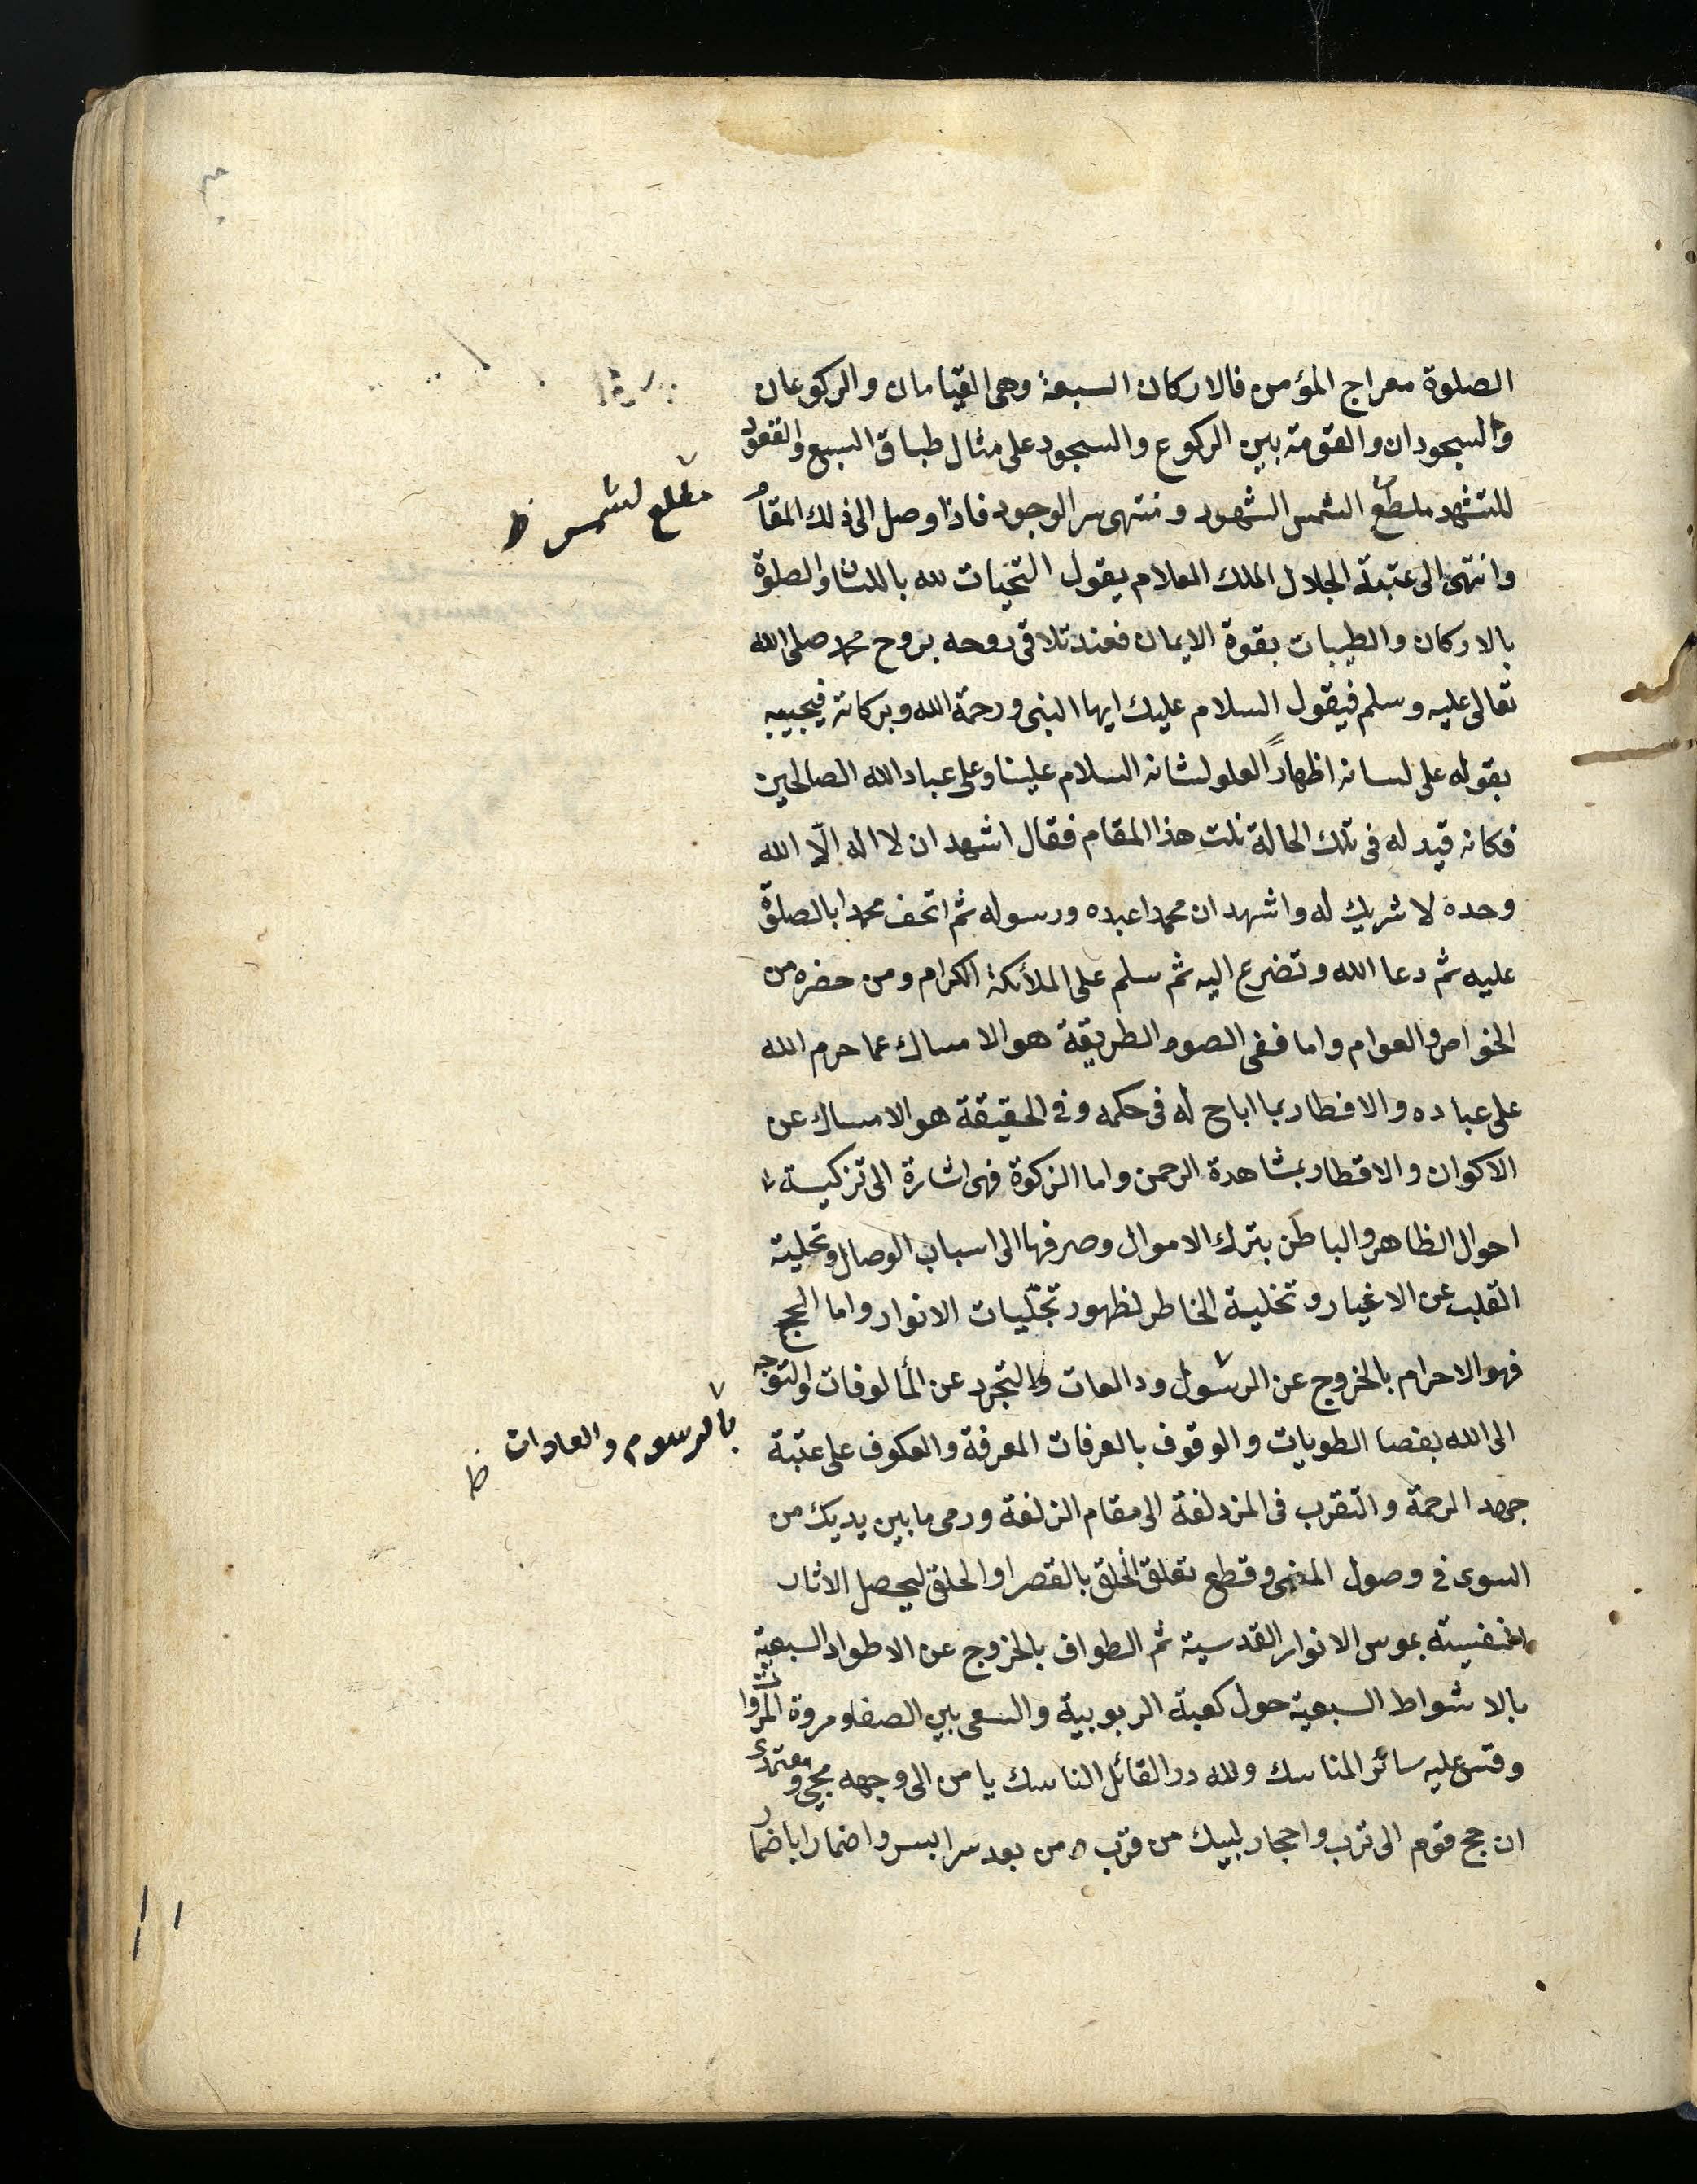 الصلوة معراج المؤمن فالاركان السبعة وهى القيامان والركوعان
والسجودان والقومة بين الركوع والسجود على مثال طباق السبع والقعود
للتشهد ملطع الشمس الشهود ومنتهى سر الوجود فاذا وصل الى ذلك المقام
مطلع لشمس ظ
وانتهى الى عتبة الجلال الملك العلام يقول التحيات لله باللسان والصلوة
بالاركان والطيبات بقوة الايمان فعند تلاقى روحه بروح محمد صلى الله
تعالى عليه وسلم فيقول السلام عليك ايها النبى ورحمة الله وبركاته فيجيبه
بقوله على لسانه اظهاراً لعلو لشانه السلام علينا وعلى عباد الله الصالحين
فكانه قيد له فى تلك الحالة نلت هذا المقام فقال اشهد ان لا اله الّا الله
وحده لا شريك له واشهد ان محمدا عبده ورسوله ثم اتحف محمدا بالصلوة
عليه ثم دعا الله وتضرع اليه ثم سلم على الملائكة الكرام ومن حضره من
الخواص والعوام واما ففى الصوم الطريقة هو الامساك عما حرم الله
على عباده والافطار بما اباح له فى حكمه وفى الحقيقة هو الامساك عن
الاكوان والاقطار بمشاهدة الرحمن واما الزكوة فهى اشارة الى تزكية
احوال الظاهر والباطن بترك الاموال وصرفها الى اسباب الوصال وتحلية
القلب عن الاغيار وتخلية الخاطر لظهور تجلّيات الانوار واما الحج
فهو الاحرام بالخروج عن الرسول ودالعات والتجرد عن المألوفات والتوجه
بالرسوم والعادات ظ
الى الله بفصا الطويات والوقوف بالعرفات المعرفة والعكوف على عتبة
جهد الرحمة والتقرب فى المزدلفة الى مقام الزلفة ورمى ما بين يديك من
السوى فى وصول المنى وقطع تعلق الخلق بالقصر او الحلق ليحصل الاثار
النفسيته بموس الانوار القدسية ثم الطواف بالخروج عن الاطوار السبعية
بالاشواط السبعية حول كعبة الربوبية والسعى بين الصفا ومروة المروا
وقس عليه سائر المناسك ولله در القائل الناسك يا من الى وجهه حجى ومعتمرى
ان حج قوم الى ترب واحجار لبيك من قرب ومن بعد سرا بسر واضمارا باضما